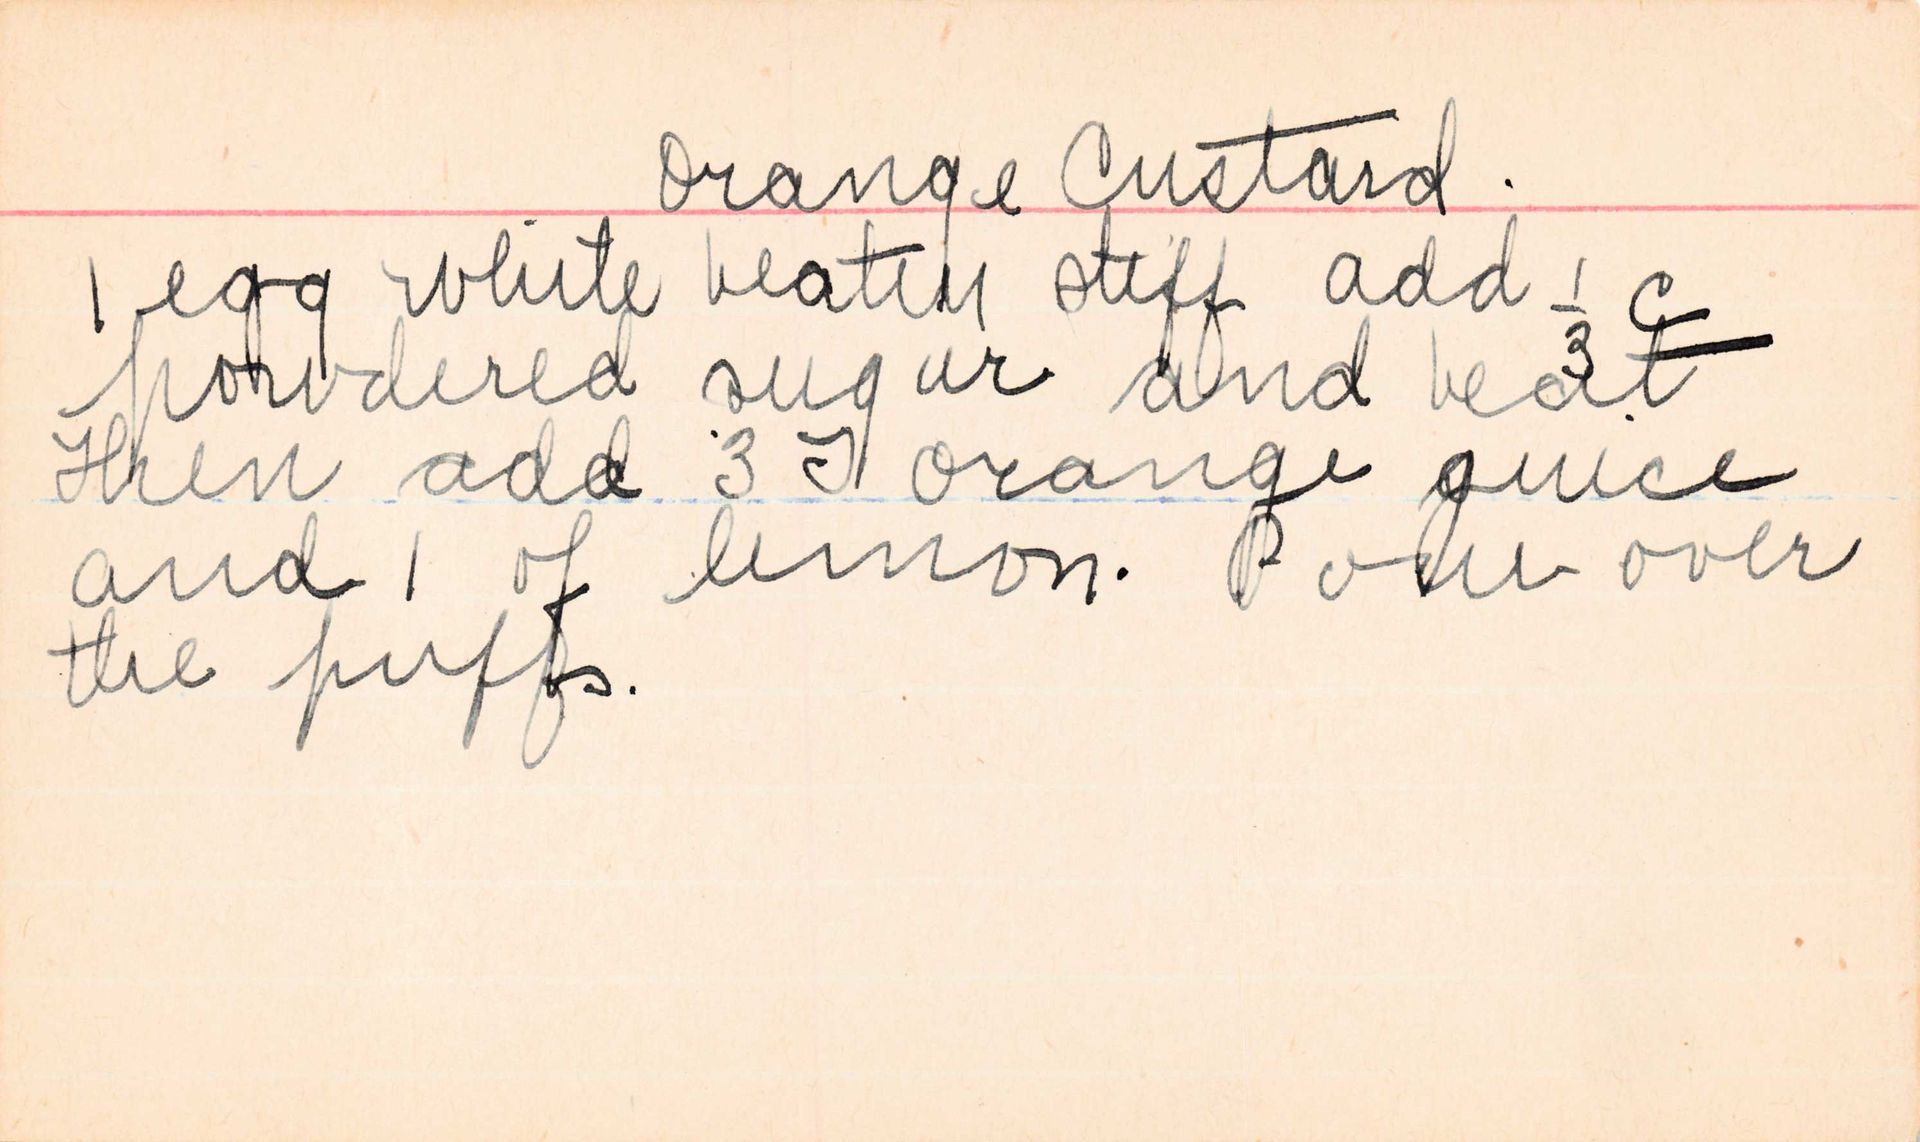 Orange Custard.
1 egg white beaten stiff add 1/3 C
powdered sugar and beat
Then add 3 T orange juice
and 1 of lemon. Pour over
the puffs.